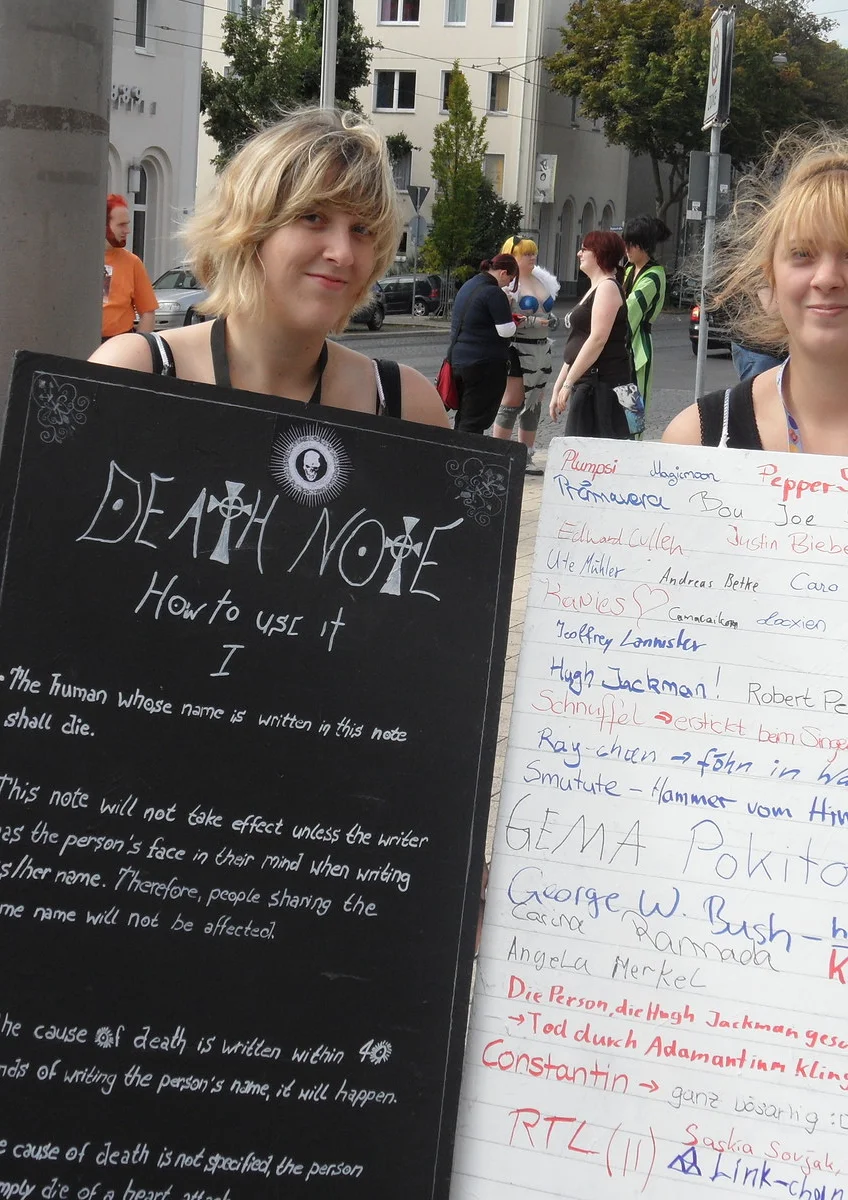 DEATH NOTE
How to use it
I
The human whose name is written in this note
shall die.
This note will not take effect unless the writer
as the person's face in their mind when writing
s/her name. Therefore, people sharing the
me name will not be affected.
he cause of death is written within 40
nds of writing the person's name, it will happen.
e cause of death is not specified, the person
mply die of a heart attack
Plumpsi Magicmoon Pepper
Primavera Bou Joe
Edward Cullen Justin Biebe
Ute Mühler Andreas Betke Caro
Karies Locxien
Jeoffrey Lannister
Hugh Jackman! Robert Pa
Schnuffel → erstickt beim Singe
Ray-chan → föhn in Wa
Smutute - Hammer vom Him
GEMA Pokito
George W. Bush - h
Carina Ramnada K
Angela Merkel
Die Person, die Hugh Jackman gesc
→ Tod durch Adamantium kling
Constantin → ganz bösartig :D
RTL (II) Saskia Sovjak,
Link-chan